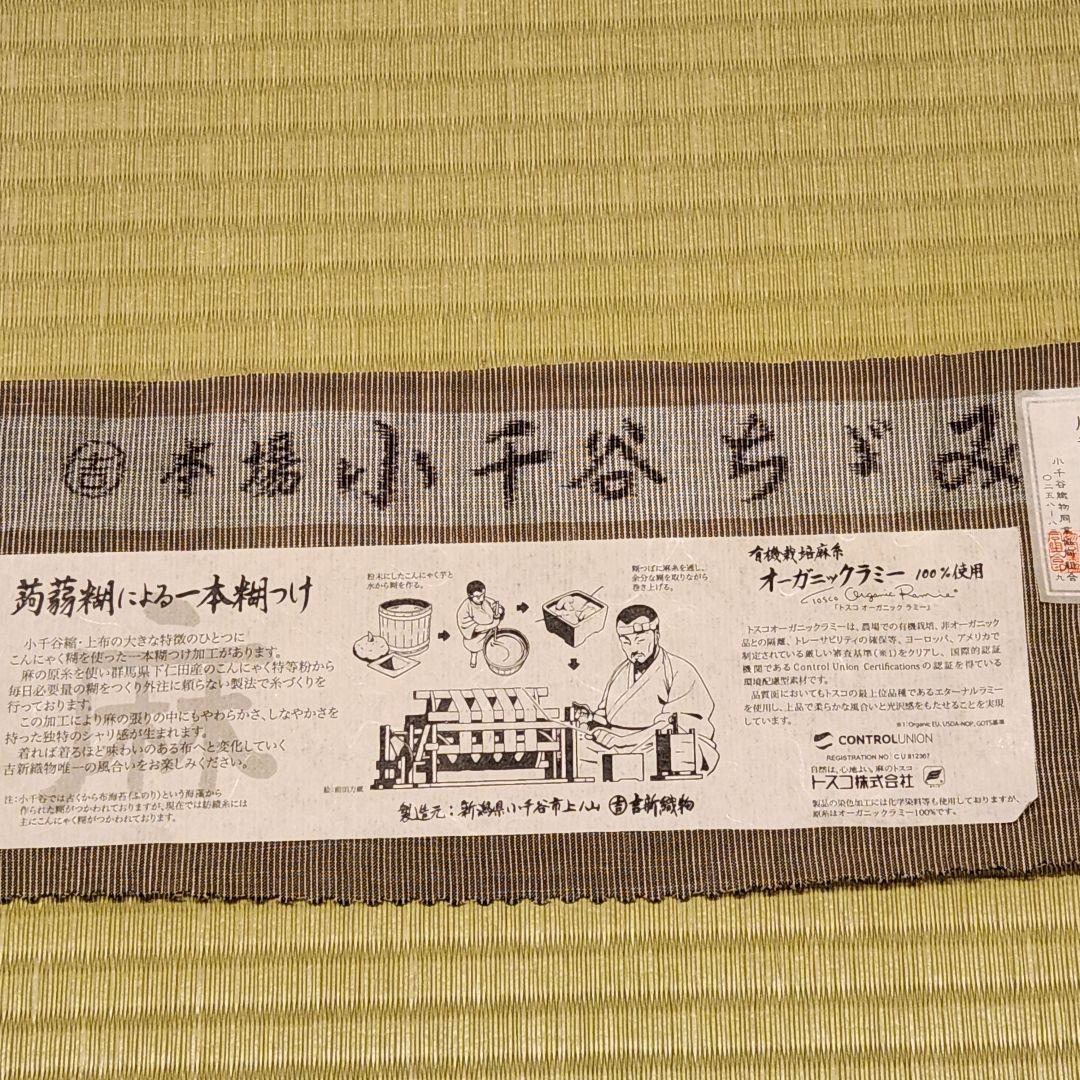 吉 本場小千谷ちぢみ
小千谷織物同業協同組合
蒟蒻糊による一本糊つけ
小千谷縮・上布の大きな特徴のひとつに
こんにゃく糊を使った一本糊つけ加工があります。
麻の原糸を使い群馬県下仁田産のこんにゃく特等粉から
毎日必要量の糊をつくり外注に頼らない製法で糸づくりを
行っております。
この加工により麻の張りの中にもやわらかさ、しなやかさを
持った独特のシャリ感が生まれます。
着れば着るほど味わいのある布へと変化していく
吉新織物唯一の風合いをお楽しみください。
注:小千谷では古くから布海苔(ふのり)という海藻から
作られた糊がつかわれておりますが、現在では紡績糸には
主にこんにゃく糊がつかわれております。
粉末にしたこんにゃく芋と
水から糊を作る。
糊つぼに麻糸を通し、
余分な糊を取りながら
巻き上げる。
絵:前田力蔵
製造元:新潟県小千谷市上ノ山 吉 吉新織物
有機栽培麻糸
オーガニックラミー 100%使用
Tosco Organic Ramie®
「トスコ オーガニック ラミー」
トスコオーガニックラミーは、農場での有機栽培、非オーガニック
品との隔離、トレーサビリティの確保等、ヨーロッパ、アメリカで
制定されている厳しい審査基準(※1)をクリアし、国際的認証
機関であるControl Union Certificationsの認証を得ている
環境配慮型素材です。
品質面においてもトスコの最上位品種であるエターナルラミー
を使用し、上品で柔らかな風合いと光沢感をもたせることを実現
しています。
※1:Organic EU, USDA-NOP, GOTS基準
CONTROLUNION
REGISTRATION NO CU 812367
自然は、心地よい。麻のトスコ
トスコ株式会社
製品の染色加工には化学染料等も使用しておりますが、
原糸はオーガニックラミー100%です。